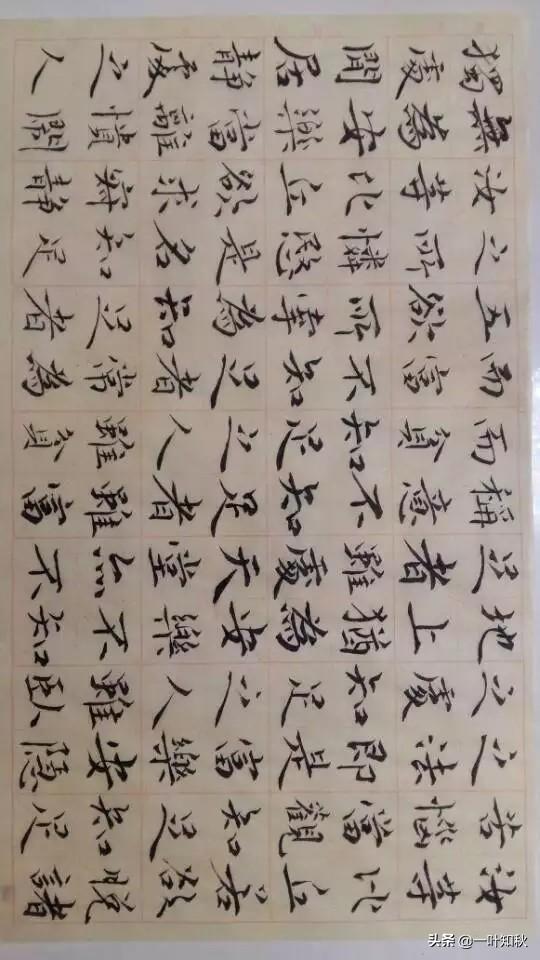 汝等比丘若欲脫諸
苦惱當觀知足知足
之法即是富樂安隱
之處知足之人雖臥
地上猶為安樂不知
足者雖處天堂亦不
稱意不知足者雖富
而貧知足之人雖貧
而富不知足者常為
五欲所牽為知足者
之所憐愍是名知足
汝等比丘欲求寂靜
無為安樂當離憒鬧
獨處閒居靜處之人
头条 @一叶知秋